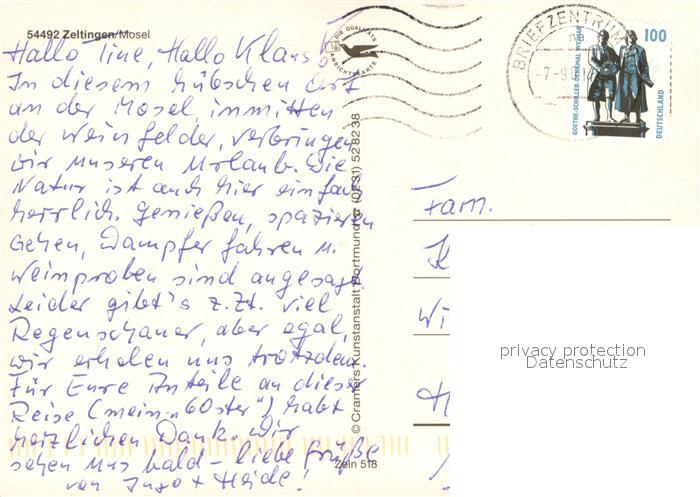 54492 Zeltingen/Mosel
Hallo Tine, Hallo Klaus
In diesem hübschen Ort
an der Mosel, inmitten
der Weinfelder, verbringen
wir unseren Urlaub. Die
Natur ist auch hier einfach
herrlich. Genießen, spazieren
gehen, Dampfer fahren u.
Weinproben sind angesagt.
Leider gibt's z.Zt. viel
Regenschauer, aber egal,
wir erholen uns trotzdem.
Für Eure Anteile an dieser
Reise (mein "60ster") habt
herzlichen Dank. Wir
sehen uns bald - liebe Grüße
von Ingo + Heide!
DIE QUALITÄTS
ANSICHTSKARTE
© Cramers Kunstanstalt Dortmund (0231) 52 82 38
Zeln 518
BRIEFZENTRUM
-7.-9.
100
GOETHE-SCHILLER-DENKMAL WEIMAR
DEUTSCHLAND
Fam.
K
Wi
H
privacy protection
Datenschutz